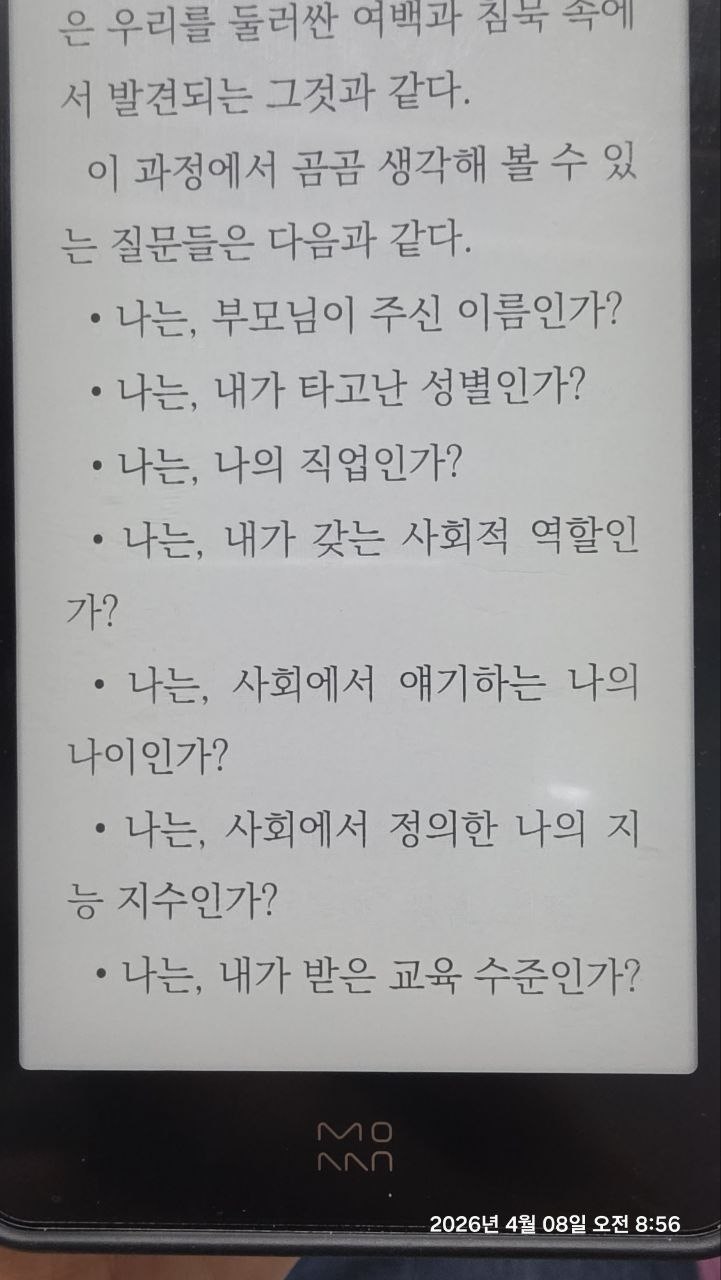 은 우리를 둘러싼 여백과 침묵 속에
서 발견되는 그것과 같다.
이 과정에서 곰곰 생각해 볼 수 있
는 질문들은 다음과 같다.
• 나는, 부모님이 주신 이름인가?
• 나는, 내가 타고난 성별인가?
• 나는, 나의 직업인가?
• 나는, 내가 갖는 사회적 역할인
가?
• 나는, 사회에서 얘기하는 나의
나이인가?
• 나는, 사회에서 정의한 나의 지
능 지수인가?
• 나는, 내가 받은 교육 수준인가?
MOAAN
2026년 4월 08일 오전 8:56